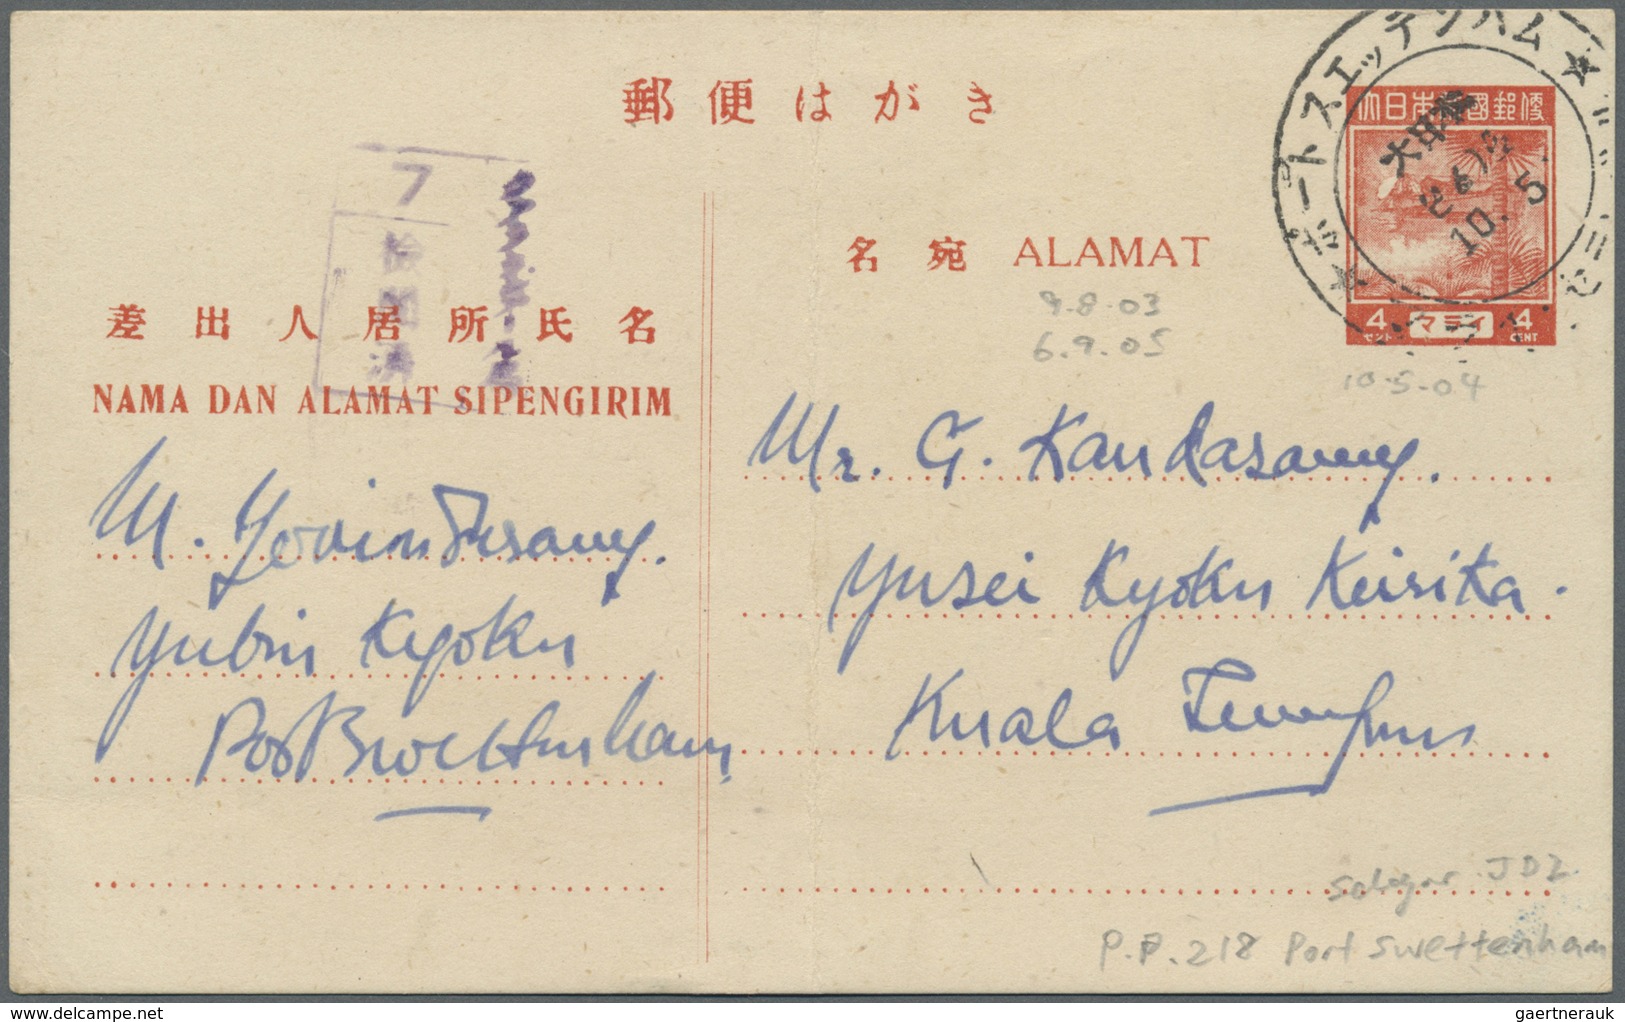 郵便はがき
ポートスエッテンハム
大日本帝國郵便
10. 5
4 マライ 4
セント CENT
名宛 ALAMAT
9.8.03
6.9.05
10.5.04
フ
差出人居所氏名
NAMA DAN ALAMAT SIPENGIRIM
Mr. G. Kandasamy.
Yusei Kyoku Keirika.
Kuala Lumpur
M. Govindasamy.
Yubin Kyoku
Port Swettenham
Selagor JDZ.
P.P. 218 Port Swettenham
gaertnerauk
www.delcampe.net